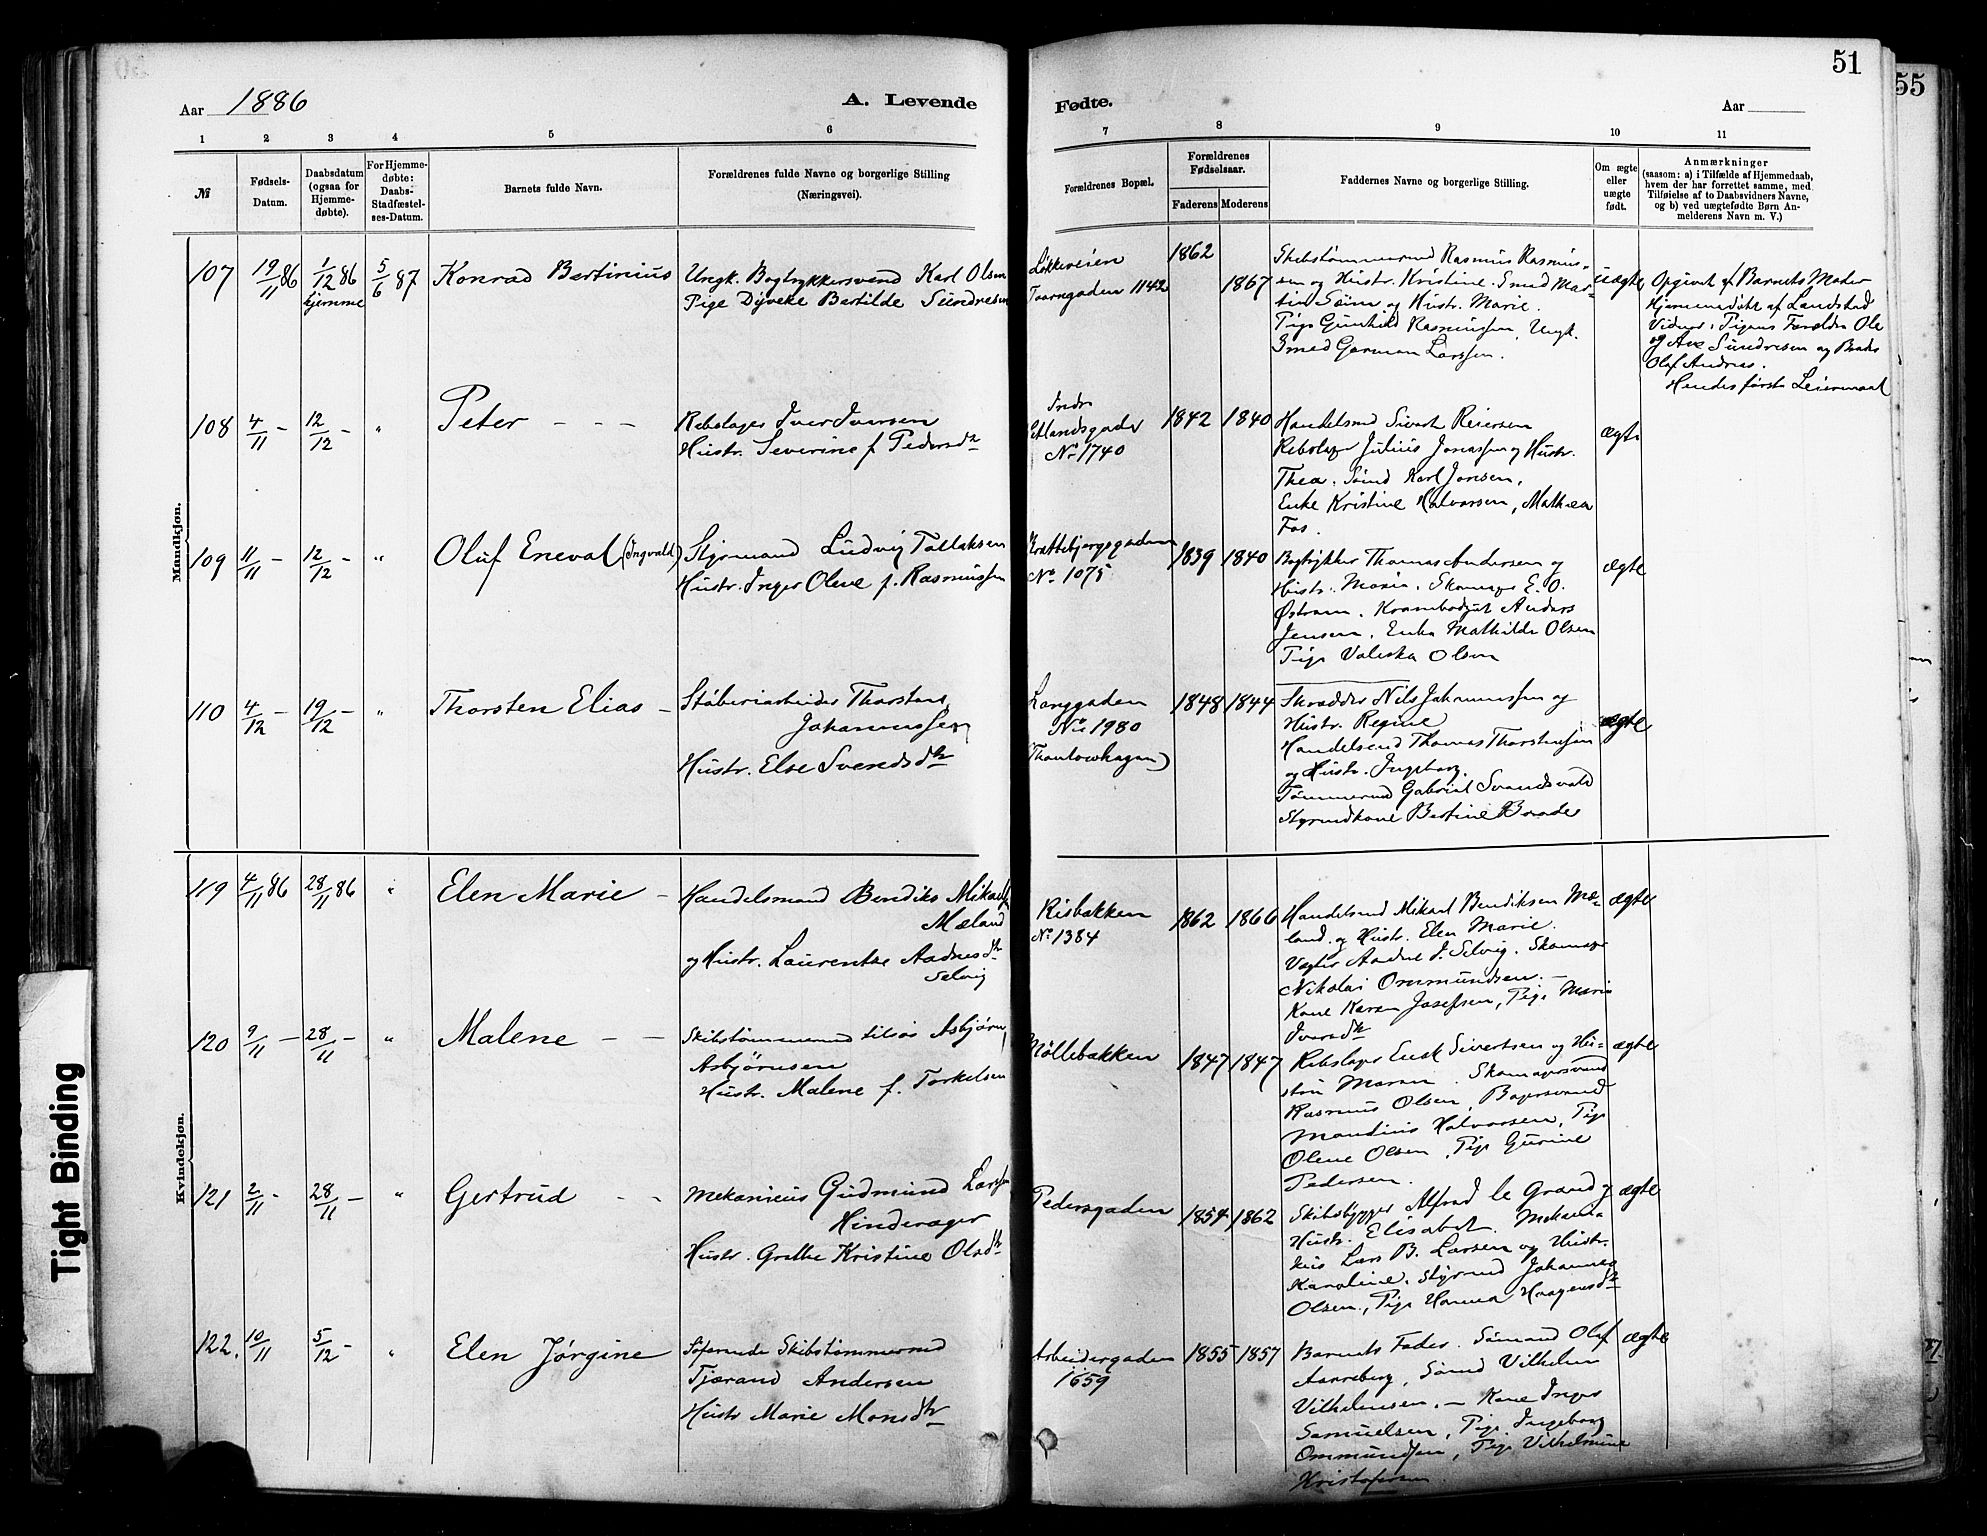 51
55
Aar 1886
A. Levende
Fødte.
Aar
1 2 3 4 5 6 7 8 9 10 11
№
Fødsels-
Datum.
Daabsdatum
(ogsaa for
Hjemme-
døbte).
For Hjemme-
døbte:
Daabs-
Stadfæstel-
ses-Datum.
Barnets fulde Navn.
Forældrenes fulde Navne og borgerlige Stilling
(Næringsvei).
Forældrenes Bopæl.
Forældrenes
Fødselsaar.
Faderens Moderens
Faddernes Navne og borgerlige Stilling.
Om ægte
eller
uægte
født.
Anmærkninger
(saasom: a) i Tilfælde af Hjemmedaab,
hvem der har forrettet samme, med
Tilføielse af to Daabsvidners Navne,
og b) ved uægtefødte Børn An-
melderens Navn m. V.)
Mandkjøn.
107 19/11 86 1/12 86 5/6 87 Konrad Bertinius
hjemme
Ungk. Bogtrykkersvend Karl Olsen
Pige Dyveke Bertilde Sundresen
Løkkeveien
Taarngaden 1142
1862
1867
Skibstømmermd Rasmus Rasmus-
sen og Hustr. Kristine. Smed Mar-
tin Søim og Hustr. Marie.
Pige Gunhild Rasmussen, Ungk.
Smed Gorman Larssen.
uægte
Opgivet af Barnets Moder
Hjemmedøbt af Landstad
Vidner: Pigens Forældre Ole
og Ane Sundresen og Broder
Olaf Andreas.
Hendes første Leiermaal
108 4/11 - 12/12 - " Peter - - -
Rebslager Iver Iversen
Hustr. Severine f. Pedersdtr
Indre
Etlandsgader
No 1740
1842 1840
Handelsmd Sivert Reiersen
Rebslager Julius Jonassen og Hustr.
Thea. Sømd Karl Jonsen,
Enke Kristine Halvorsen, Mathea
Fos.
ægte
109 11/11 - 12/12 - " Oluf Eneval (Ingvald)
Styrmand Ludvig Tollaksen
Hustr. Inger Olene f. Rasmussen
Brattebjergsgaden
No 1075
1839 1840
Bogtrykker Thomas Andersen og
Hustr. Maria. Skomager E. O.
Østram. Krambodgut Anders
Jensen. Enke Mathilde Olsen
Pige Valeska Olsen
ægte
110 4/12 - 19/12 - " Thorsten Elias -
Støberiarbeider Thorstens
Johannessen
Hustr. Else Svendsdtr
Langgaden
No 1980
Thaulowhagen)
1848 1844
Skrædder Nils Johannessen og
Hustr. Regine
Handelsmd Thomas Thorstensen
og Hustr. Ingeborg.
Tømmermd Gabriel Svendsvold
Styrmdkone Bertine Baade
ægte
Kvindekjøn.
119 4/11 86 28/11 86 " Elen Marie -
Handelsmand Bendiks Mikael
Mæland
og Hustr. Laurentse Aadnesdtr
Selvig
Risbakken
No 1384
1862 1866
Handelsmd Mikael Bendiksen Mæ-
land og Hustr. Elen Marie.
Vægter Aadne J. Selvig. Skomager
Nikolai Ommundsen. -
Kone Karen Josefsen, Pige Marie
Iversdtr
ægte
120 9/11 - 28/11 - " Malene - -
Skibstømmermd tilsøs Asbjørn
Asbjørnsen
Hustr. Malene f. Torkelsen
Møllebakken
1847 1847
Rebslager Enok Sivertsen og Hu-
stru Maren. Skomagersvend
Rasmus Olsen, Bagersvend
Mandius Halvorsen, Pige
Olene Olsen, Pige Gurine
Pedersen.
ægte
121 2/11 - 28/11 - " Gertrud - -
Mekanicus Gudmund Larssen
Hinderager
Hustr. Grethe Kristine Olsdtr
Pedersgaden
1854 1862
Skibsbygger Alfred le Grand og
Hustr. Elisabet. Mekani-
kus Lars B. Larsen og Hustr.
Karoline. Styrmd Johannes
Olsen, Pige Hanna Haagensdtr
ægte
122. 10/11 5/12 - " Elen Jørgine
Søfarende Skibstømmermd
Tjærand Andersen
Hustr Marie Monsdtr
Arbeidergaden
1659
1855 1857
Barnets Fader. Sømand Olaf
Aarreberg, Sømd Vilhelm
Vilhelmsen. - Kone Inger
Samuelsen, Pige Ingeborg
Ommundsen, Pige Vilhelmine
Kristofersen.
ægte
Tight Binding